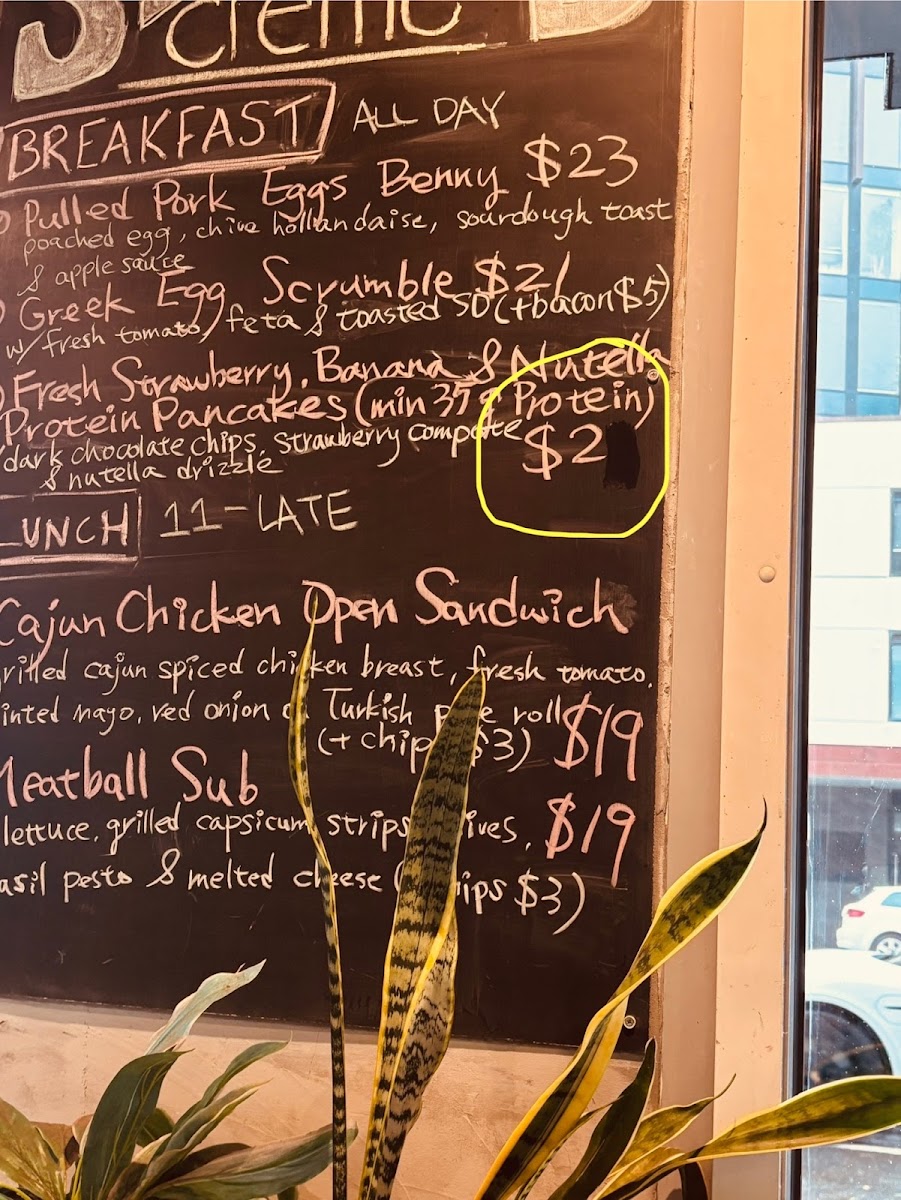 BREAKFAST ALL DAY
Pulled Pork Eggs Benny $23
poached egg, chive hollandaise, sourdough toast
& apple sauce
Greek Egg Scrumble $21
w/ fresh tomato, feta & toasted SD (+bacon $5)
Fresh Strawberry, Banana & Nutella
Protein Pancakes (min 35g Protein)
dark chocolate chips, strawberry compote $2
& nutella drizzle
LUNCH 11-LATE
Cajun Chicken Open Sandwich
grilled cajun spiced chicken breast, fresh tomato,
mayo, red onion Turkish roll
(+ chips $3) $19
Meatball Sub
lettuce, grilled capsicum strips, $19
pesto & melted cheese $3)